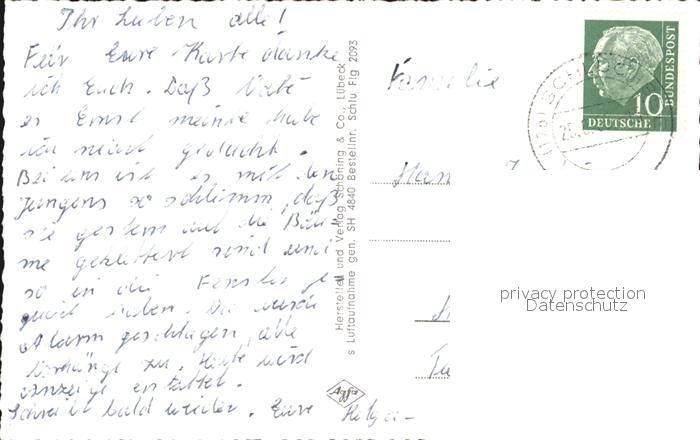 Ihr Lieben alle!
Für Eure Karte danke
ich Euch. Daß Vati
es Ernst meinte habe
ich nicht gedacht.
Bei uns ist es mit den
Jungens so schlimm, daß
sie gestern auf die Bäu-
me geklettert sind und
so in die Fenster ge
guckt haben. Da wurde
Alarm geschlagen, alle
Vorhänge zu. Heute wird
Anzeige erstattet.
Schreibt bald wieder. Eure Helga
Familie
Herstellet und Verlag Schöning & Co., Lübeck
s Luftaufnahme gen. SH 4840 Bestellnr. Schlu Flg 2093
Agfa
10
DEUTSCHE
BUNDESPOST
privacy protection
Datenschutz